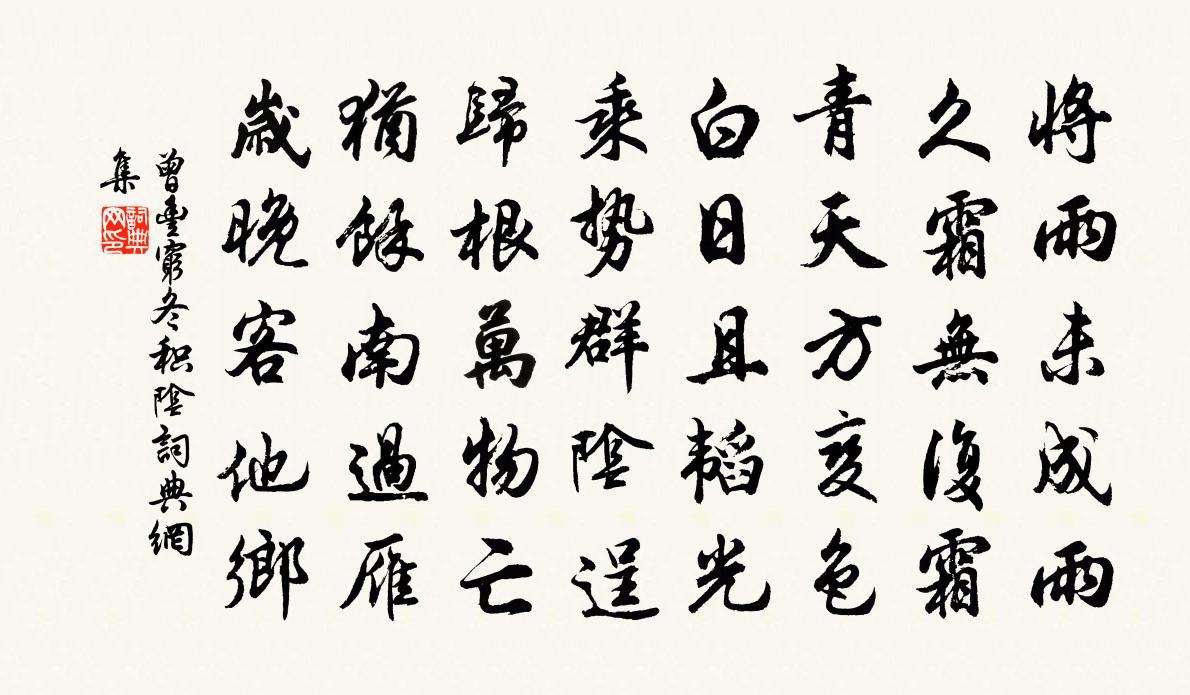 將雨未成雨
久霜無復霜
青天方变色
白日且韜光
乘勢群陰逞
歸根萬物亡
猶餘南過雁
歲晚客他鄉
曾豐窮冬积陰詞典網
集
詞典网印